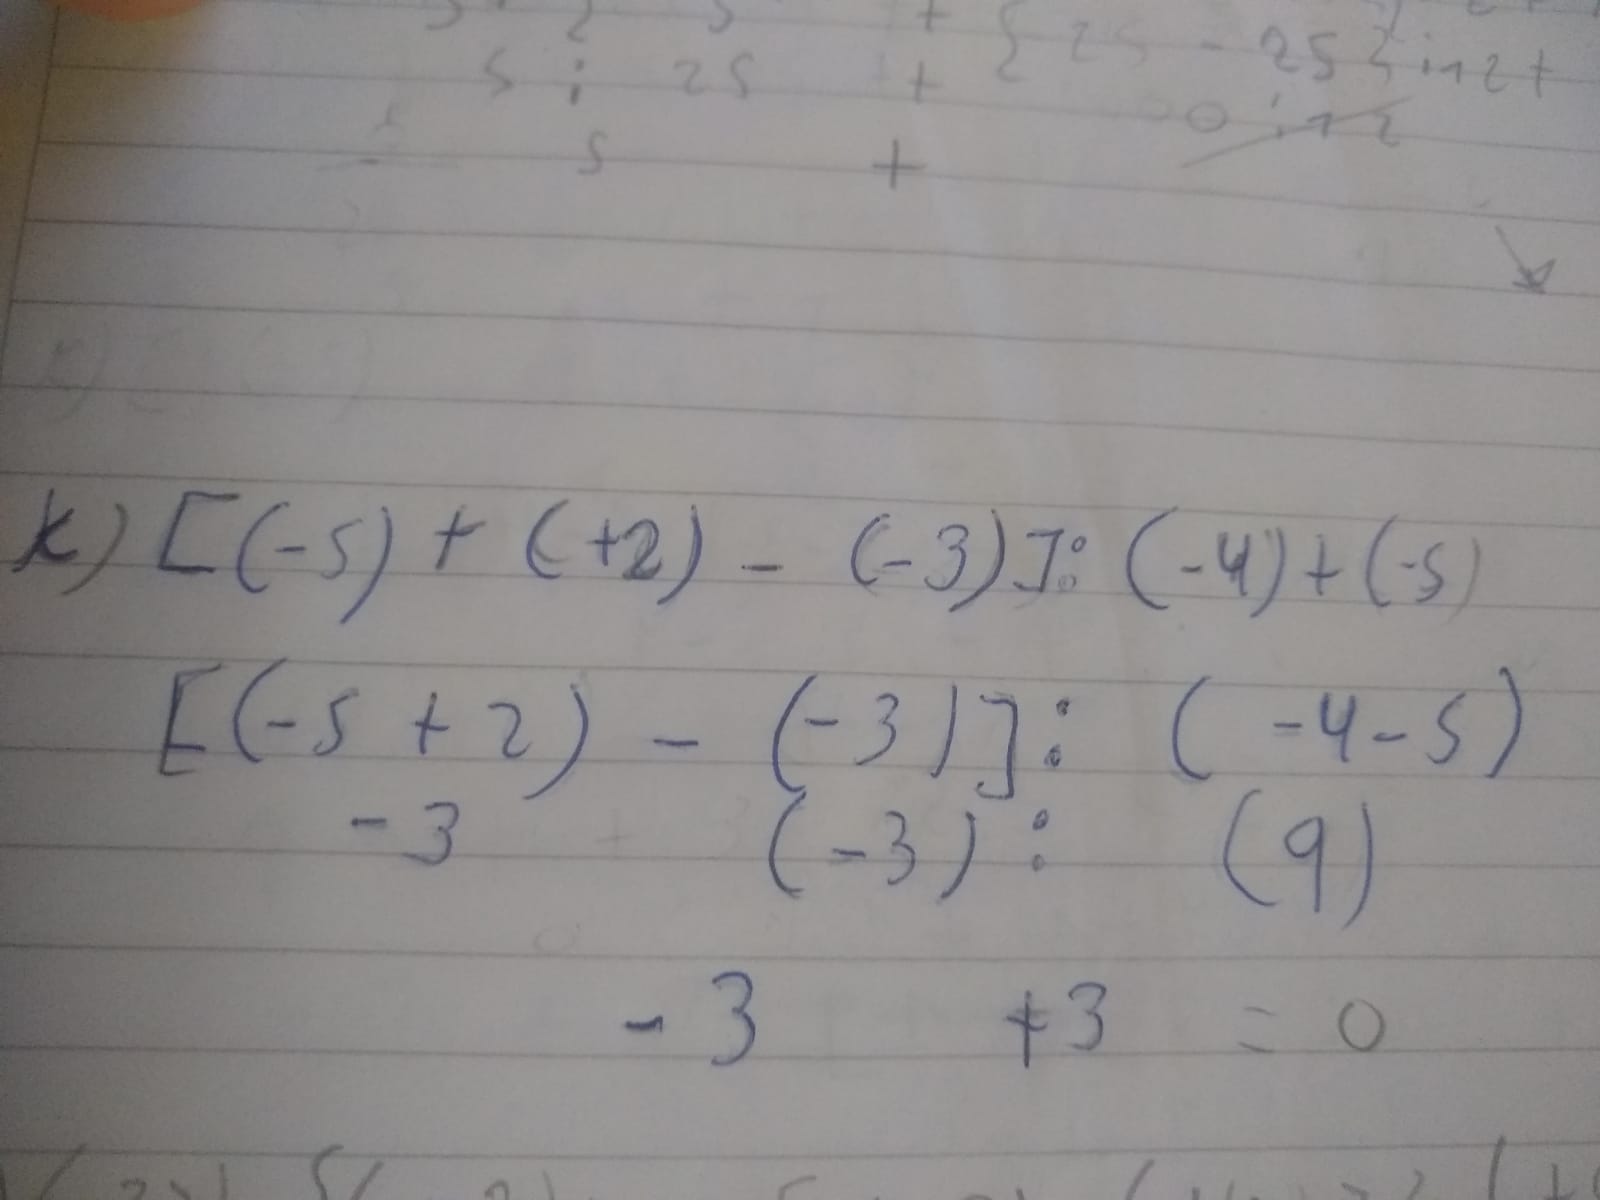 5 : 25 + { 25 - 25 } : 12 +
0 : 12
5 +
k) [(-5) + (+2) - (-3)]: (-4)+(-5)
[(-5 + 2) - (-3)]: (-4-5)
-3 (-3) : (9)
-3 +3 = 0